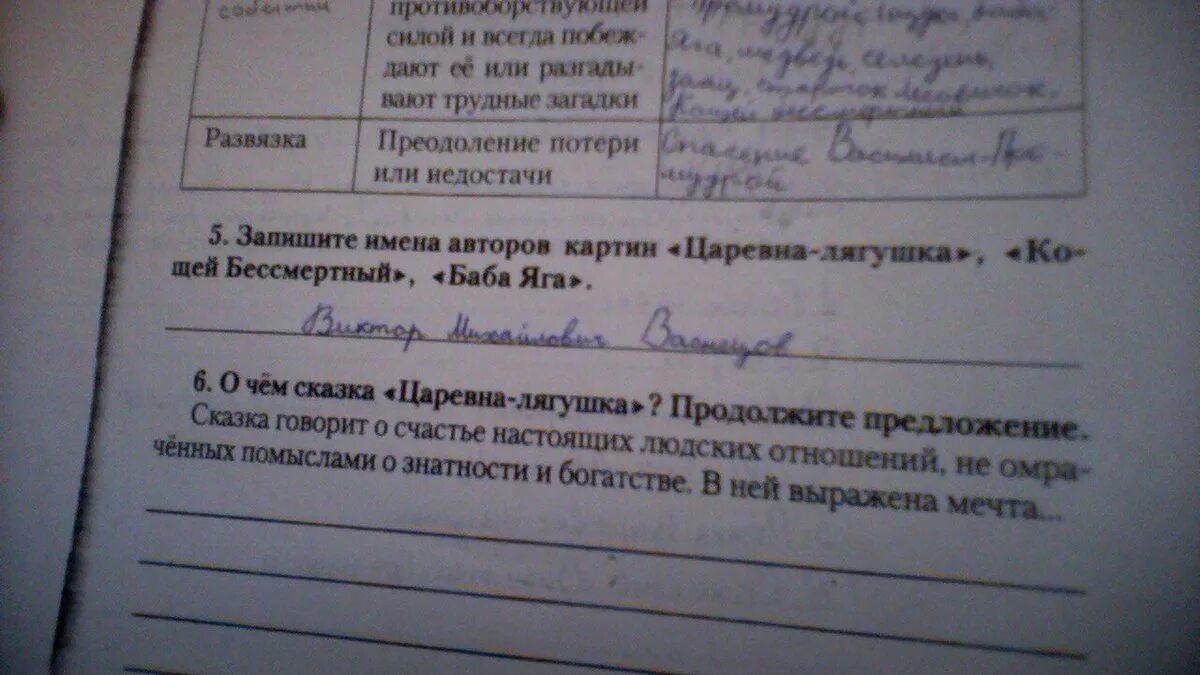 события
противоборствующей
силой и всегда побеж-
дают её или разгады-
вают трудные загадки
Яга, медведь, селезень,
Кощей бессмертный
Развязка
Преодоление потери
или недостачи
Спасение Василисы-Пре-
мудрой
5. Запишите имена авторов картин «Царевна-лягушка», «Ко-
щей Бессмертный», «Баба Яга».
Виктор Михайлович Васнецов
6. О чём сказка «Царевна-лягушка»? Продолжите предложение.
Сказка говорит о счастье настоящих людских отношений, не омра-
чённых помыслами о знатности и богатстве. В ней выражена мечта...